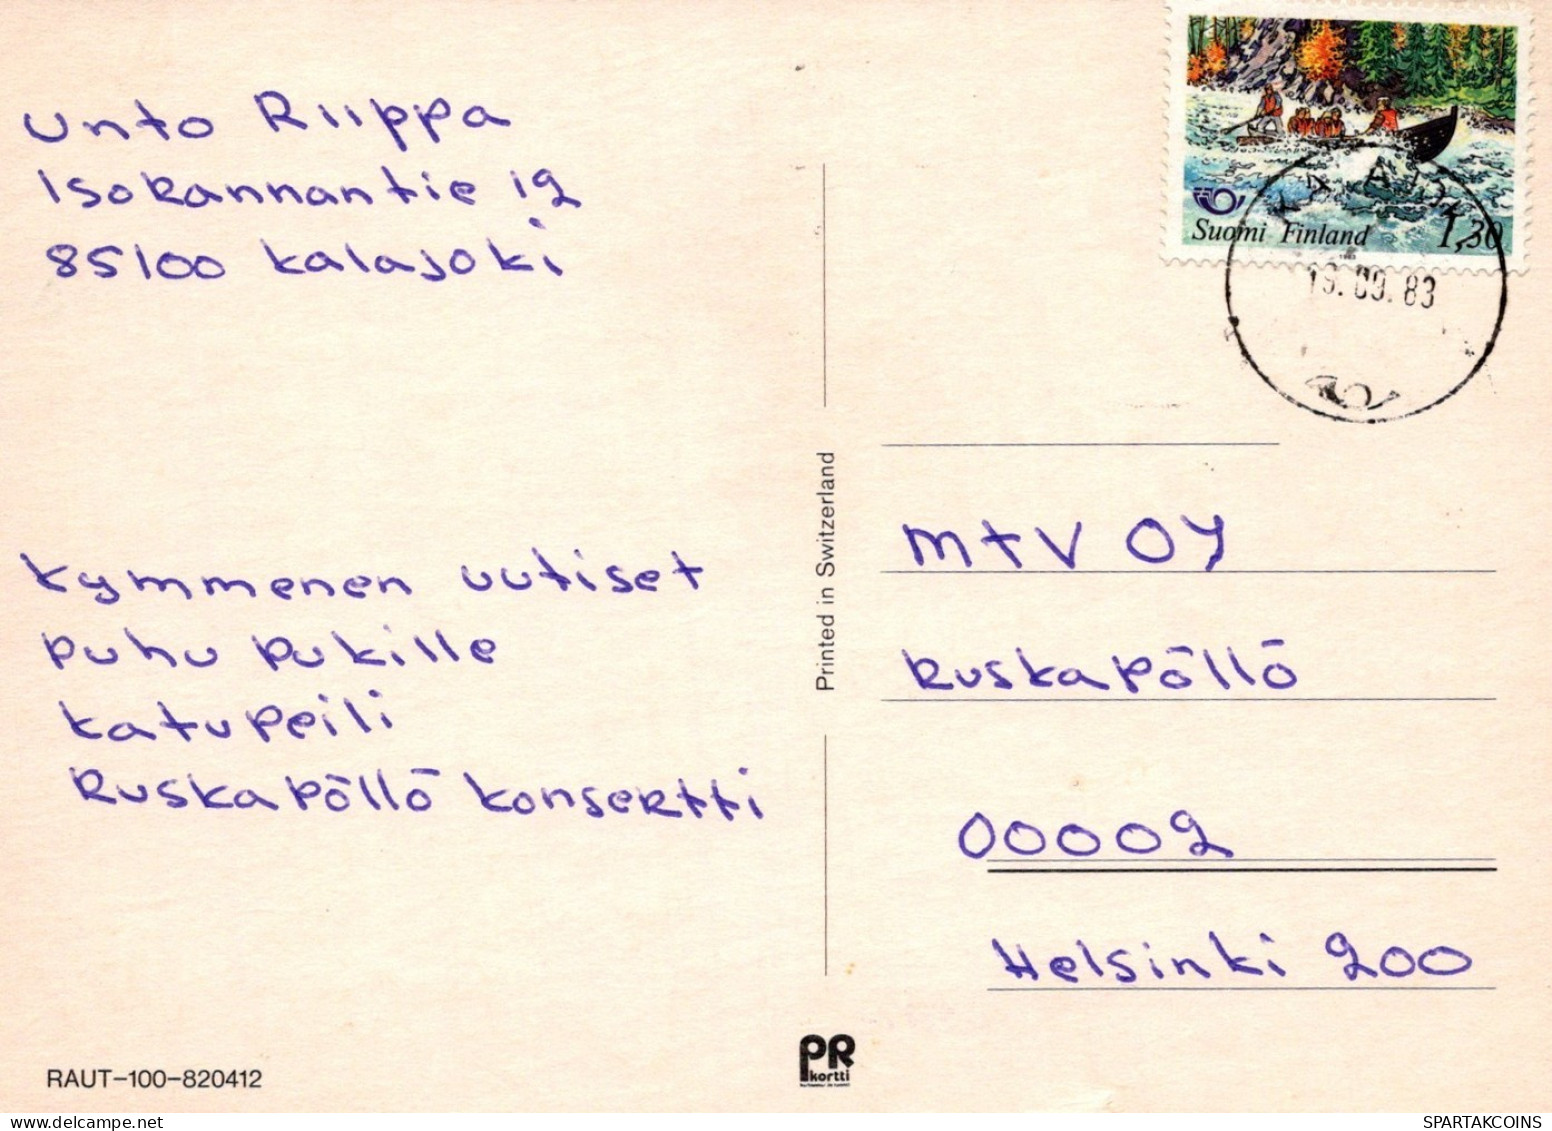 Unto Riippa
Isokannantie 12
85100 Kalajoki
Kymmenen uutiset
Puhu Pukille
Katupeili
Ruskapöllö konsertti
RAUT-100-820412
Printed in Switzerland
PR
kortti
Suomi Finland 1,30
1983
19.09.83
MTV OY
Ruskapöllö
00002
Helsinki 200
SPARTAKCOINS
www.delcampe.net